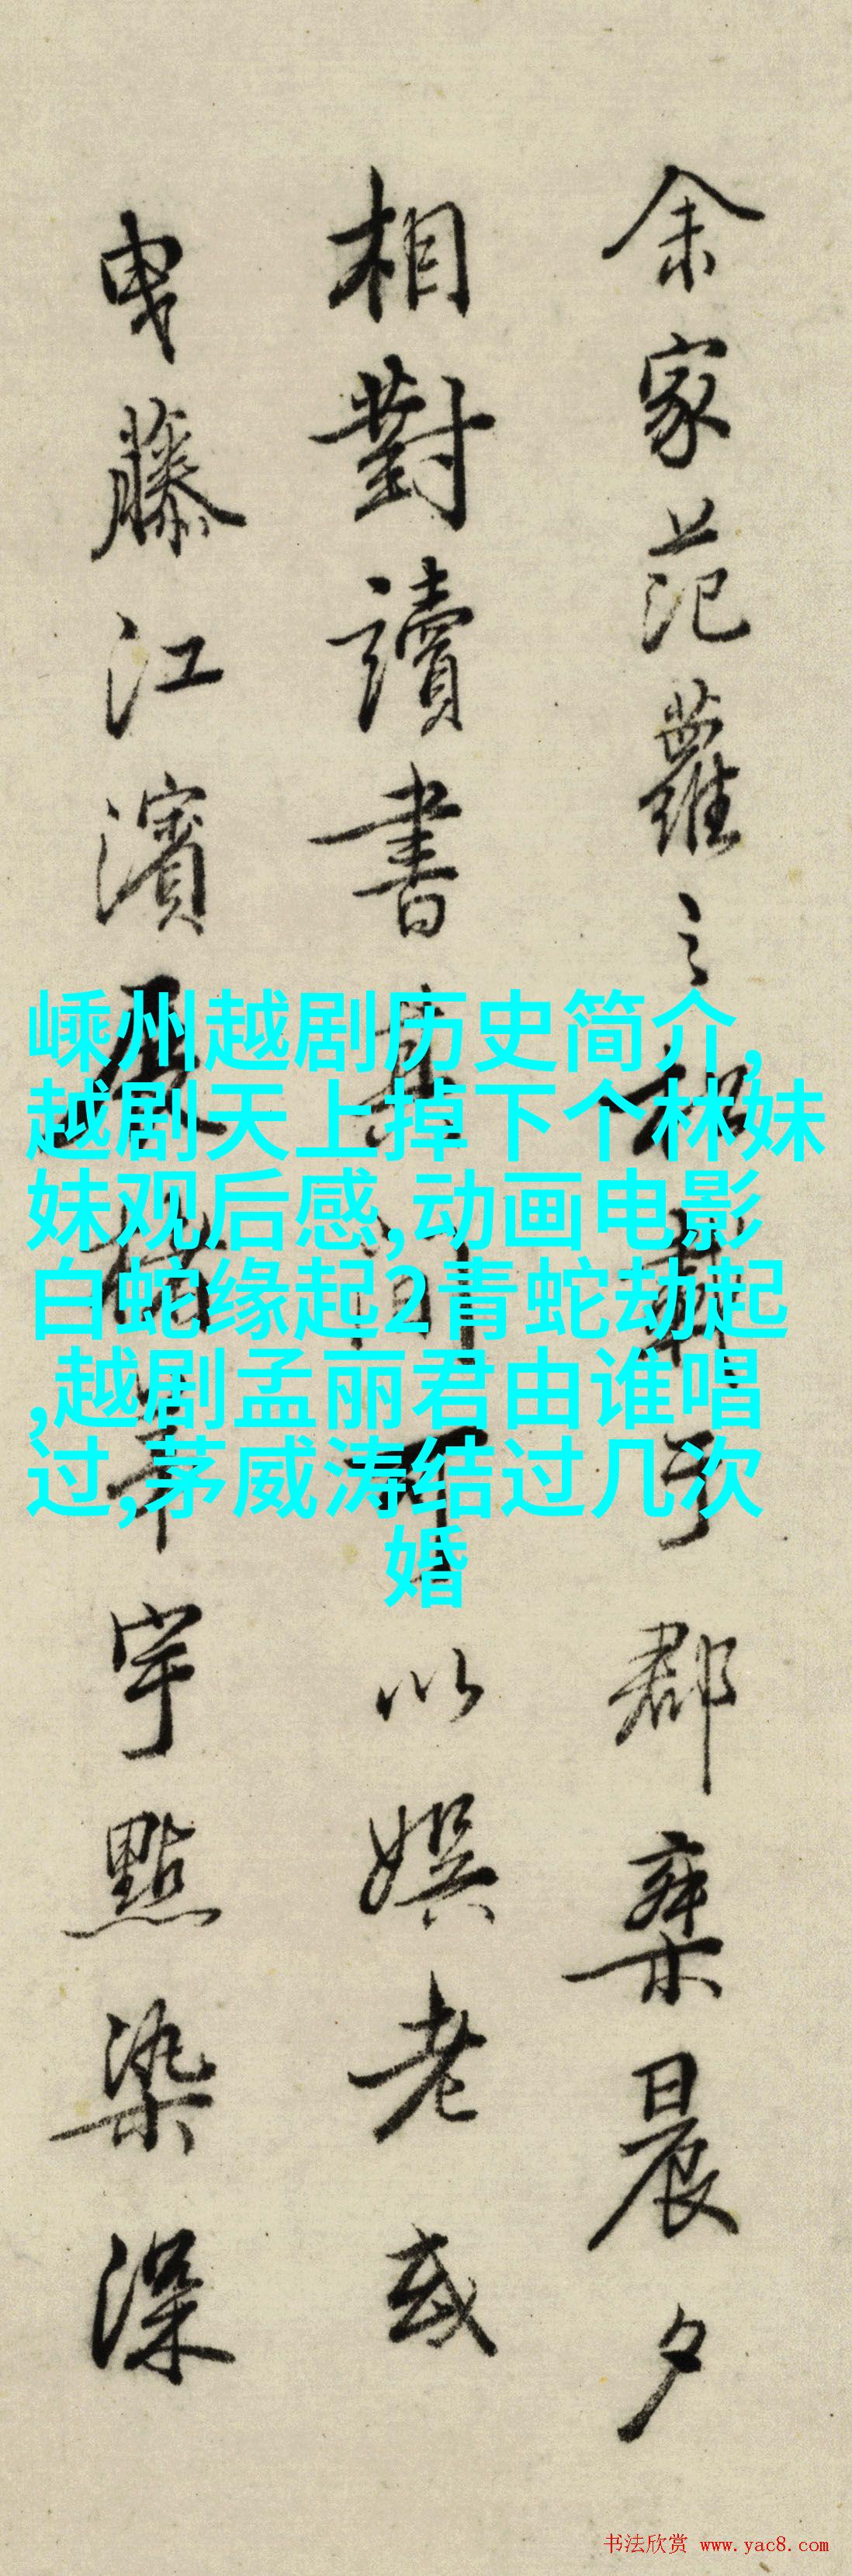 余家范蘿之于郡晨夕
相對讀書其間可以娛老或
曳藤江濱宇點染深
嵊州越剧历史简介,
越剧天上掉下个林妹
妹观后感,动画电影
白蛇缘起2青蛇劫起
,越剧孟丽君由谁唱
过,茅威涛结过几次
婚
书法欣赏 www.yac8.com